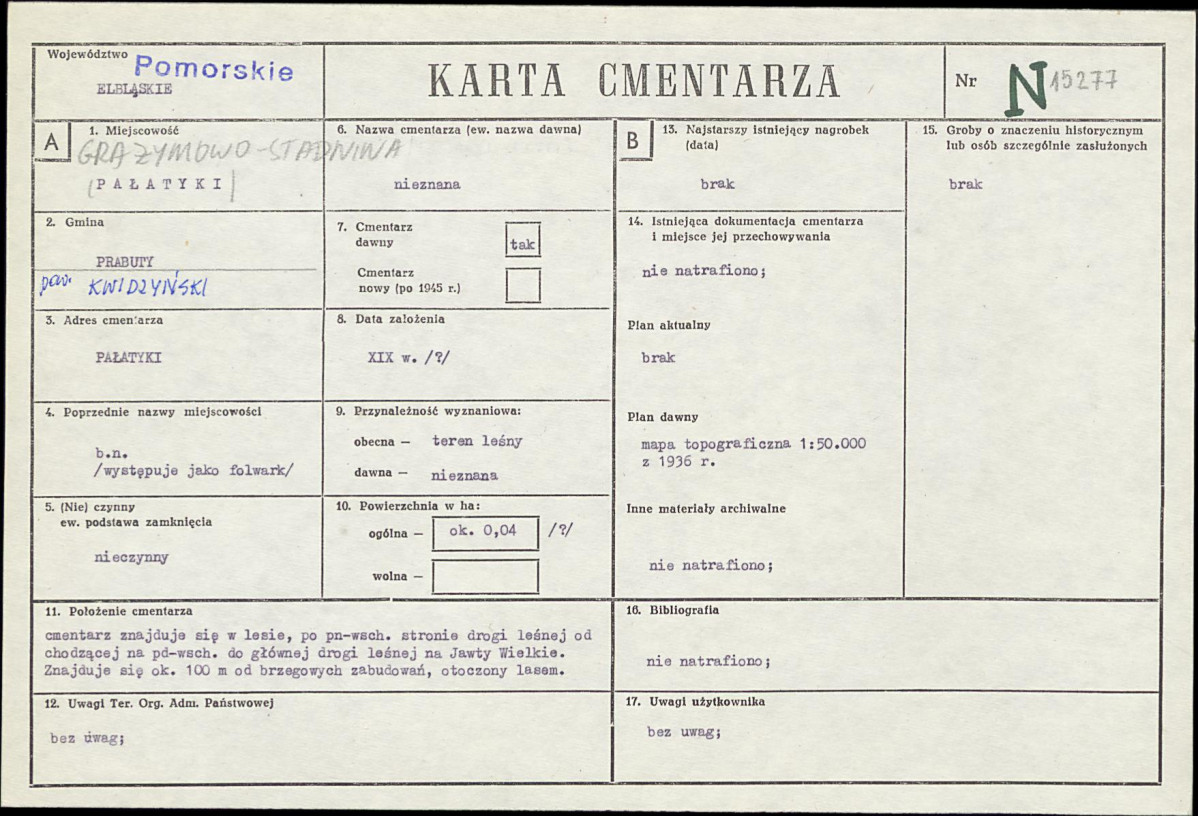 Województwo
Pomorskie
ELBLĄSKIE
KARTA CMENTARZA
Nr N 15277
A
1. Miejscowość
GRAŻYMOWO - STADNINA
(PAŁATYKI)
2. Gmina
PRABUTY
pow. KWIDZYŃSKI
3. Adres cmentarza
PAŁATYKI
4. Poprzednie nazwy miejscowości
b.n.
/występuje jako folwark/
5. (Nie) czynny
ew. podstawa zamknięcia
nieczynny
6. Nazwa cmentarza (ew. nazwa dawna)
nieznana
7. Cmentarz
dawny
tak
Cmentarz
nowy (po 1945 r.)
8. Data założenia
XIX w. /?/
9. Przynależność wyznaniowa:
obecna — teren leśny
dawna — nieznana
10. Powierzchnia w ha:
ogólna — ok. 0,04 /?/
wolna —
B
13. Najstarszy istniejący nagrobek
(data)
brak
14. Istniejąca dokumentacja cmentarza
i miejsce jej przechowywania
nie natrafiono;
Plan aktualny
brak
Plan dawny
mapa topograficzna 1:50.000
z 1936 r.
Inne materiały archiwalne
nie natrafiono;
15. Groby o znaczeniu historycznym
lub osób szczególnie zasłużonych
brak
11. Położenie cmentarza
cmentarz znajduje się w lesie, po pn-wsch. stronie drogi leśnej od
chodzącej na pd-wsch. do głównej drogi leśnej na Jawty Wielkie.
Znajduje się ok. 100 m od brzegowych zabudowań, otoczony lasem.
12. Uwagi Ter. Org. Adm. Państwowej
bez uwag;
16. Bibliografia
nie natrafiono;
17. Uwagi użytkownika
bez uwag;